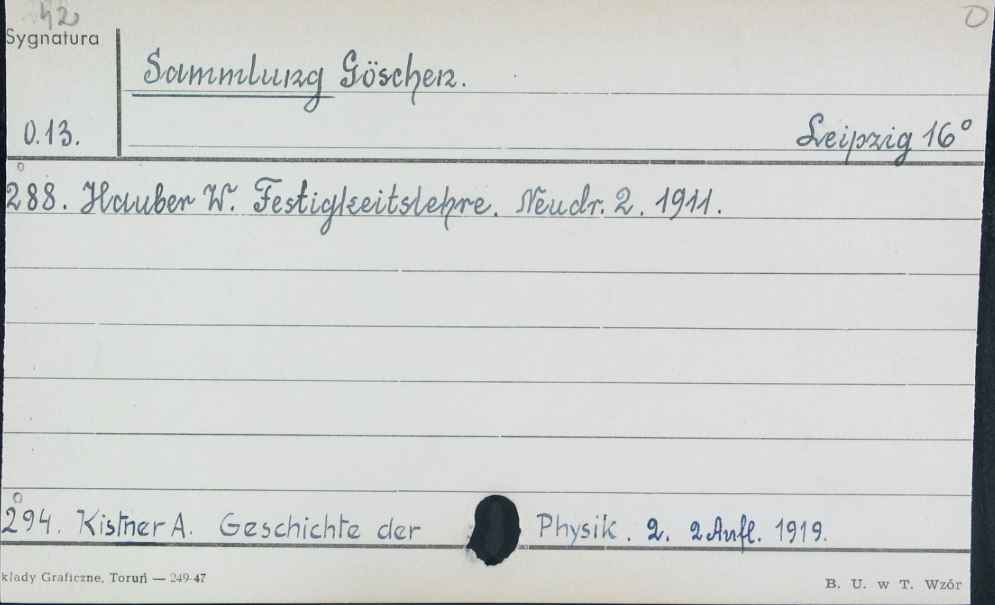 42
O
Sygnatura
Sammlung Göschen.
0.13.
Leipzig 16°
288. Hauber W. Festigkeitslehre. Neudr. 2. 1911.
294. Kistner A. Geschichte der Physik. 2. 2 Aufl. 1919.
kłady Graficzne, Toruń — 249-47
B. U. w T. Wzór